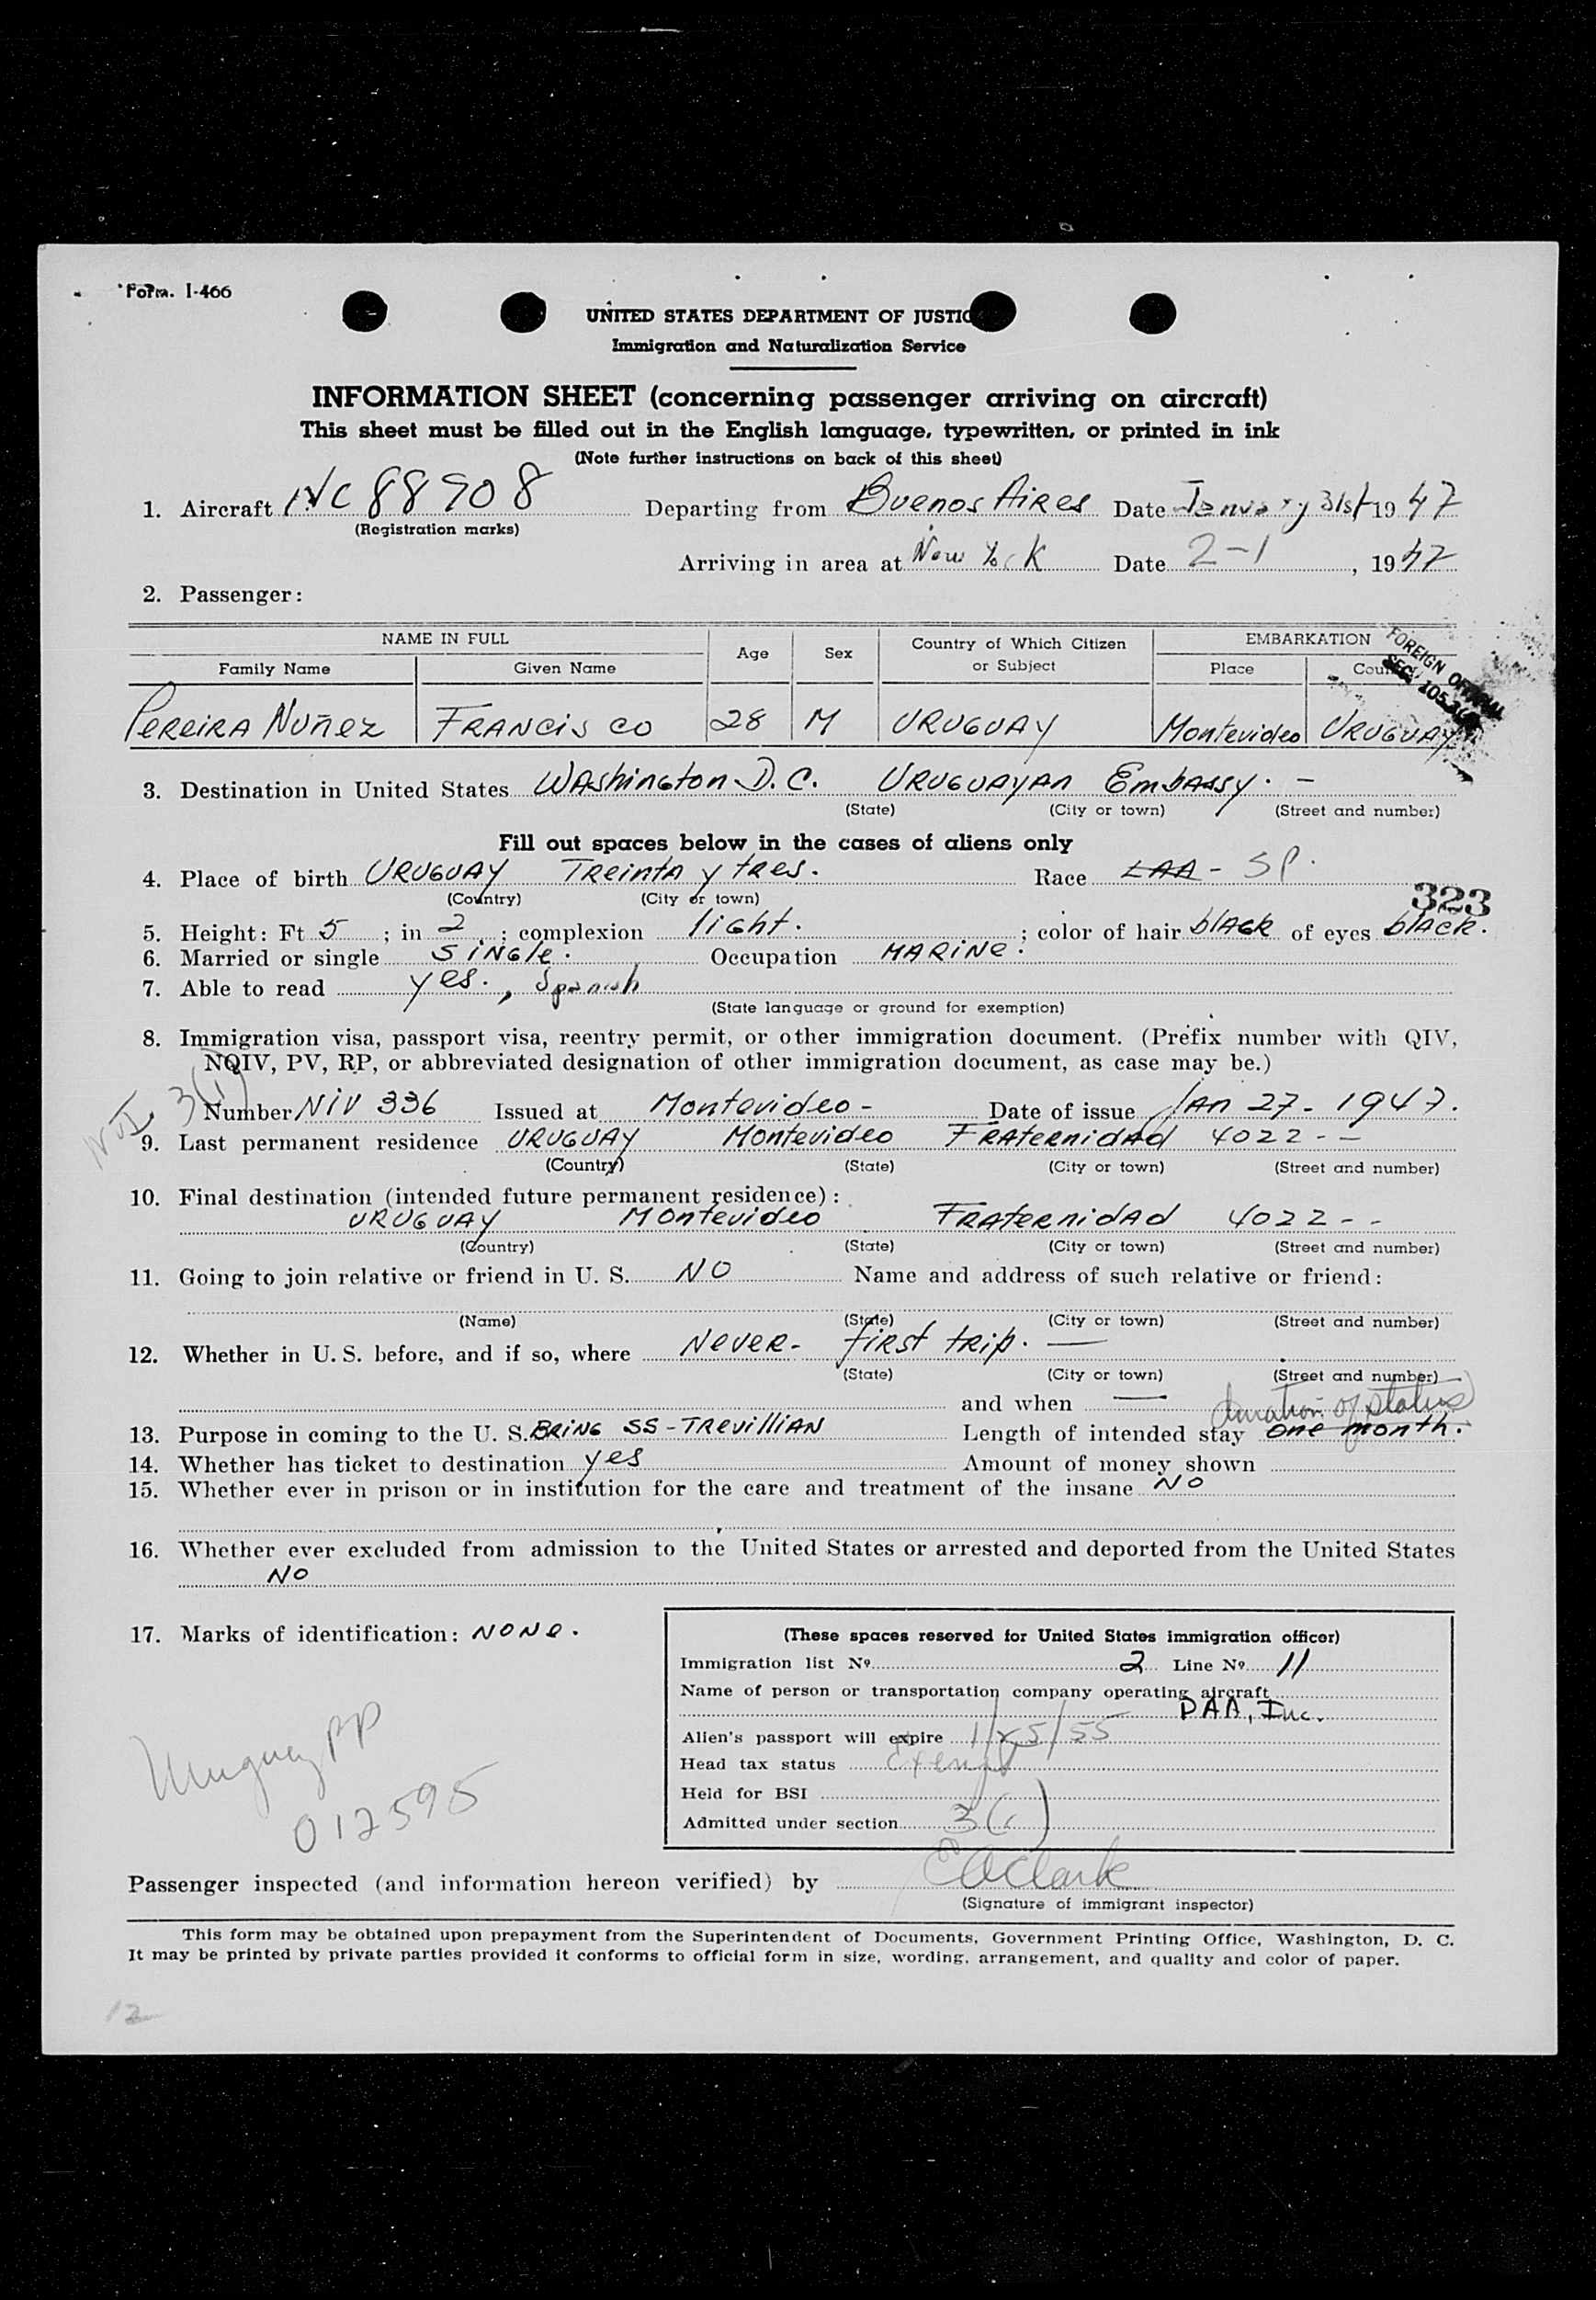 Form. I-466
UNITED STATES DEPARTMENT OF JUSTIC
Immigration and Naturalization Service
INFORMATION SHEET (concerning passenger arriving on aircraft)
This sheet must be filled out in the English language, typewritten, or printed in ink
(Note further instructions on back of this sheet)
1. Aircraft NC 88908 Departing from Buenos Aires Date January 31st 1947
(Registration marks)
Arriving in area at New York Date 2-1, 1947
2. Passenger:
NAME IN FULL Age Sex Country of Which Citizen or Subject EMBARKATION
Family Name Given Name Place
FOREIGN OFFICIAL
SEC. 105.3
PEREIRA NUñez FRANCISCO 28 M URUGUAY Montevideo URUGUAY
3. Destination in United States WAShington D.C. URUGUAYAN EmbASSY. -
(State) (City or town) (Street and number)
Fill out spaces below in the cases of aliens only
4. Place of birth URUGUAY TReintA y tRes. Race LAA - SP.
(Country) (City or town)
323
5. Height: Ft 5 ; in 2 ; complexion light. ; color of hair blAck of eyes blAck.
6. Married or single SiNGle. Occupation MARiNe.
7. Able to read yes., Spanish
(State language or ground for exemption)
8. Immigration visa, passport visa, reentry permit, or other immigration document. (Prefix number with QIV,
NQIV, PV, RP, or abbreviated designation of other immigration document, as case may be.)
3(1)
Number NIV 336 Issued at Montevideo - Date of issue JAn 27 - 1947.
9. Last permanent residence URUGUAY Montevideo FRAteRnidAd 4022 - -
(Country) (State) (City or town) (Street and number)
10. Final destination (intended future permanent residence):
URUGUAY Montevideo FRAteRnidAd 4022 - -
(Country) (State) (City or town) (Street and number)
11. Going to join relative or friend in U. S. NO Name and address of such relative or friend:
(Name) (State) (City or town) (Street and number)
12. Whether in U. S. before, and if so, where NeveR - fiRst tRip. —
(State) (City or town) (Street and number)
and when — duration of status
13. Purpose in coming to the U. S. BRiNG SS - TRevilliAN Length of intended stay one month.
14. Whether has ticket to destination yes Amount of money shown
15. Whether ever in prison or in institution for the care and treatment of the insane NO
16. Whether ever excluded from admission to the United States or arrested and deported from the United States
NO
17. Marks of identification: NONe.
(These spaces reserved for United States immigration officer)
Immigration list No. 2 Line No. 11
Name of person or transportation company operating aircraft
PAA, Inc.
Alien's passport will expire 1/25/55
Head tax status exempt
Held for BSI
Admitted under section 3(1)
Uruguay PP
012595
Passenger inspected (and information hereon verified) by E A Clark
(Signature of immigrant inspector)
This form may be obtained upon prepayment from the Superintendent of Documents, Government Printing Office, Washington, D. C.
It may be printed by private parties provided it conforms to official form in size, wording, arrangement, and quality and color of paper.
12